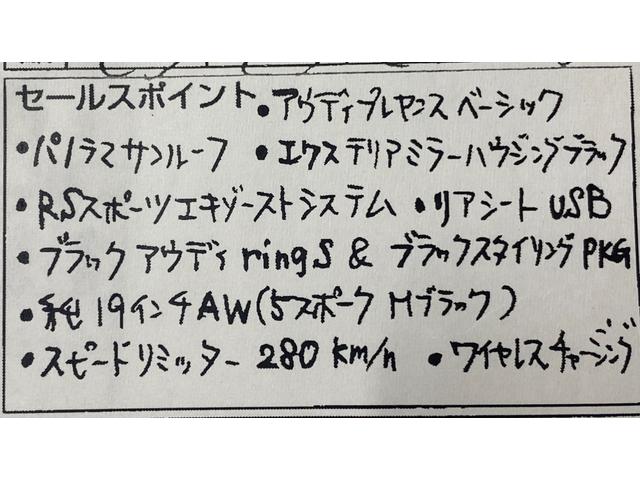 セールスポイント •アウディプレセンス ベーシック
•パノラマサンルーフ •エクステリアミラーハウジングブラック
•RSスポーツエキゾーストシステム •リアシート USB
•ブラック アウディ rings & ブラックスタイリング PKG
•純 19インチAW(5スポーク Mブラック)
•スピードリミッター 280 km/h •ワイヤレスチャージング